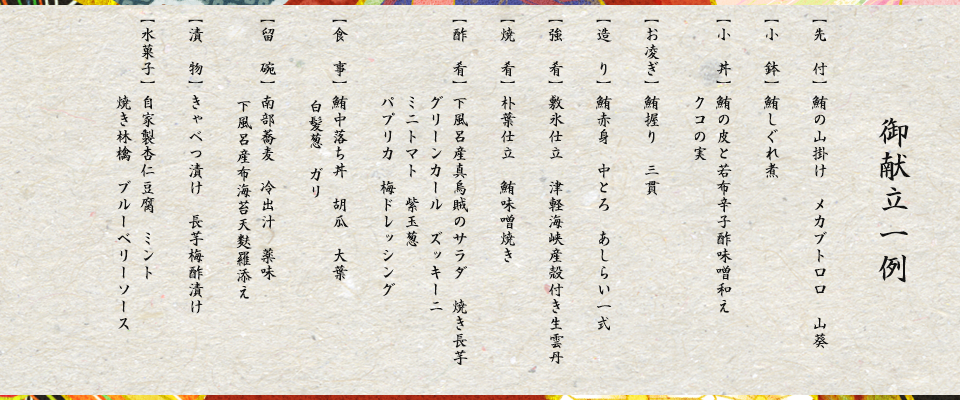 御献立一例
【先付】鮪の山掛け　メカブトロロ　山葵
【小鉢】鮪しぐれ煮
【小丼】鮪の皮と若布辛子酢味噌和え
クコの実
【お凌ぎ】鮪握り　三貫
【造り】鮪赤身　中とろ　あしらい一式
【強肴】敷氷仕立　津軽海峡産殻付き生雲丹
【焼肴】朴葉仕立　鮪味噌焼き
【酢肴】下風呂産真烏賊のサラダ　焼き長芋
グリーンカール　ズッキーニ
ミニトマト　紫玉葱
パプリカ　梅ドレッシング
【食事】鮪中落ち丼　胡瓜　大葉
白髪葱　ガリ
【留碗】南部蕎麦　冷出汁　薬味
下風呂産布海苔天麩羅添え
【漬物】きゃべつ漬け　長芋梅酢漬け
【水菓子】自家製杏仁豆腐　ミント
焼き林檎　ブルーベリーソース